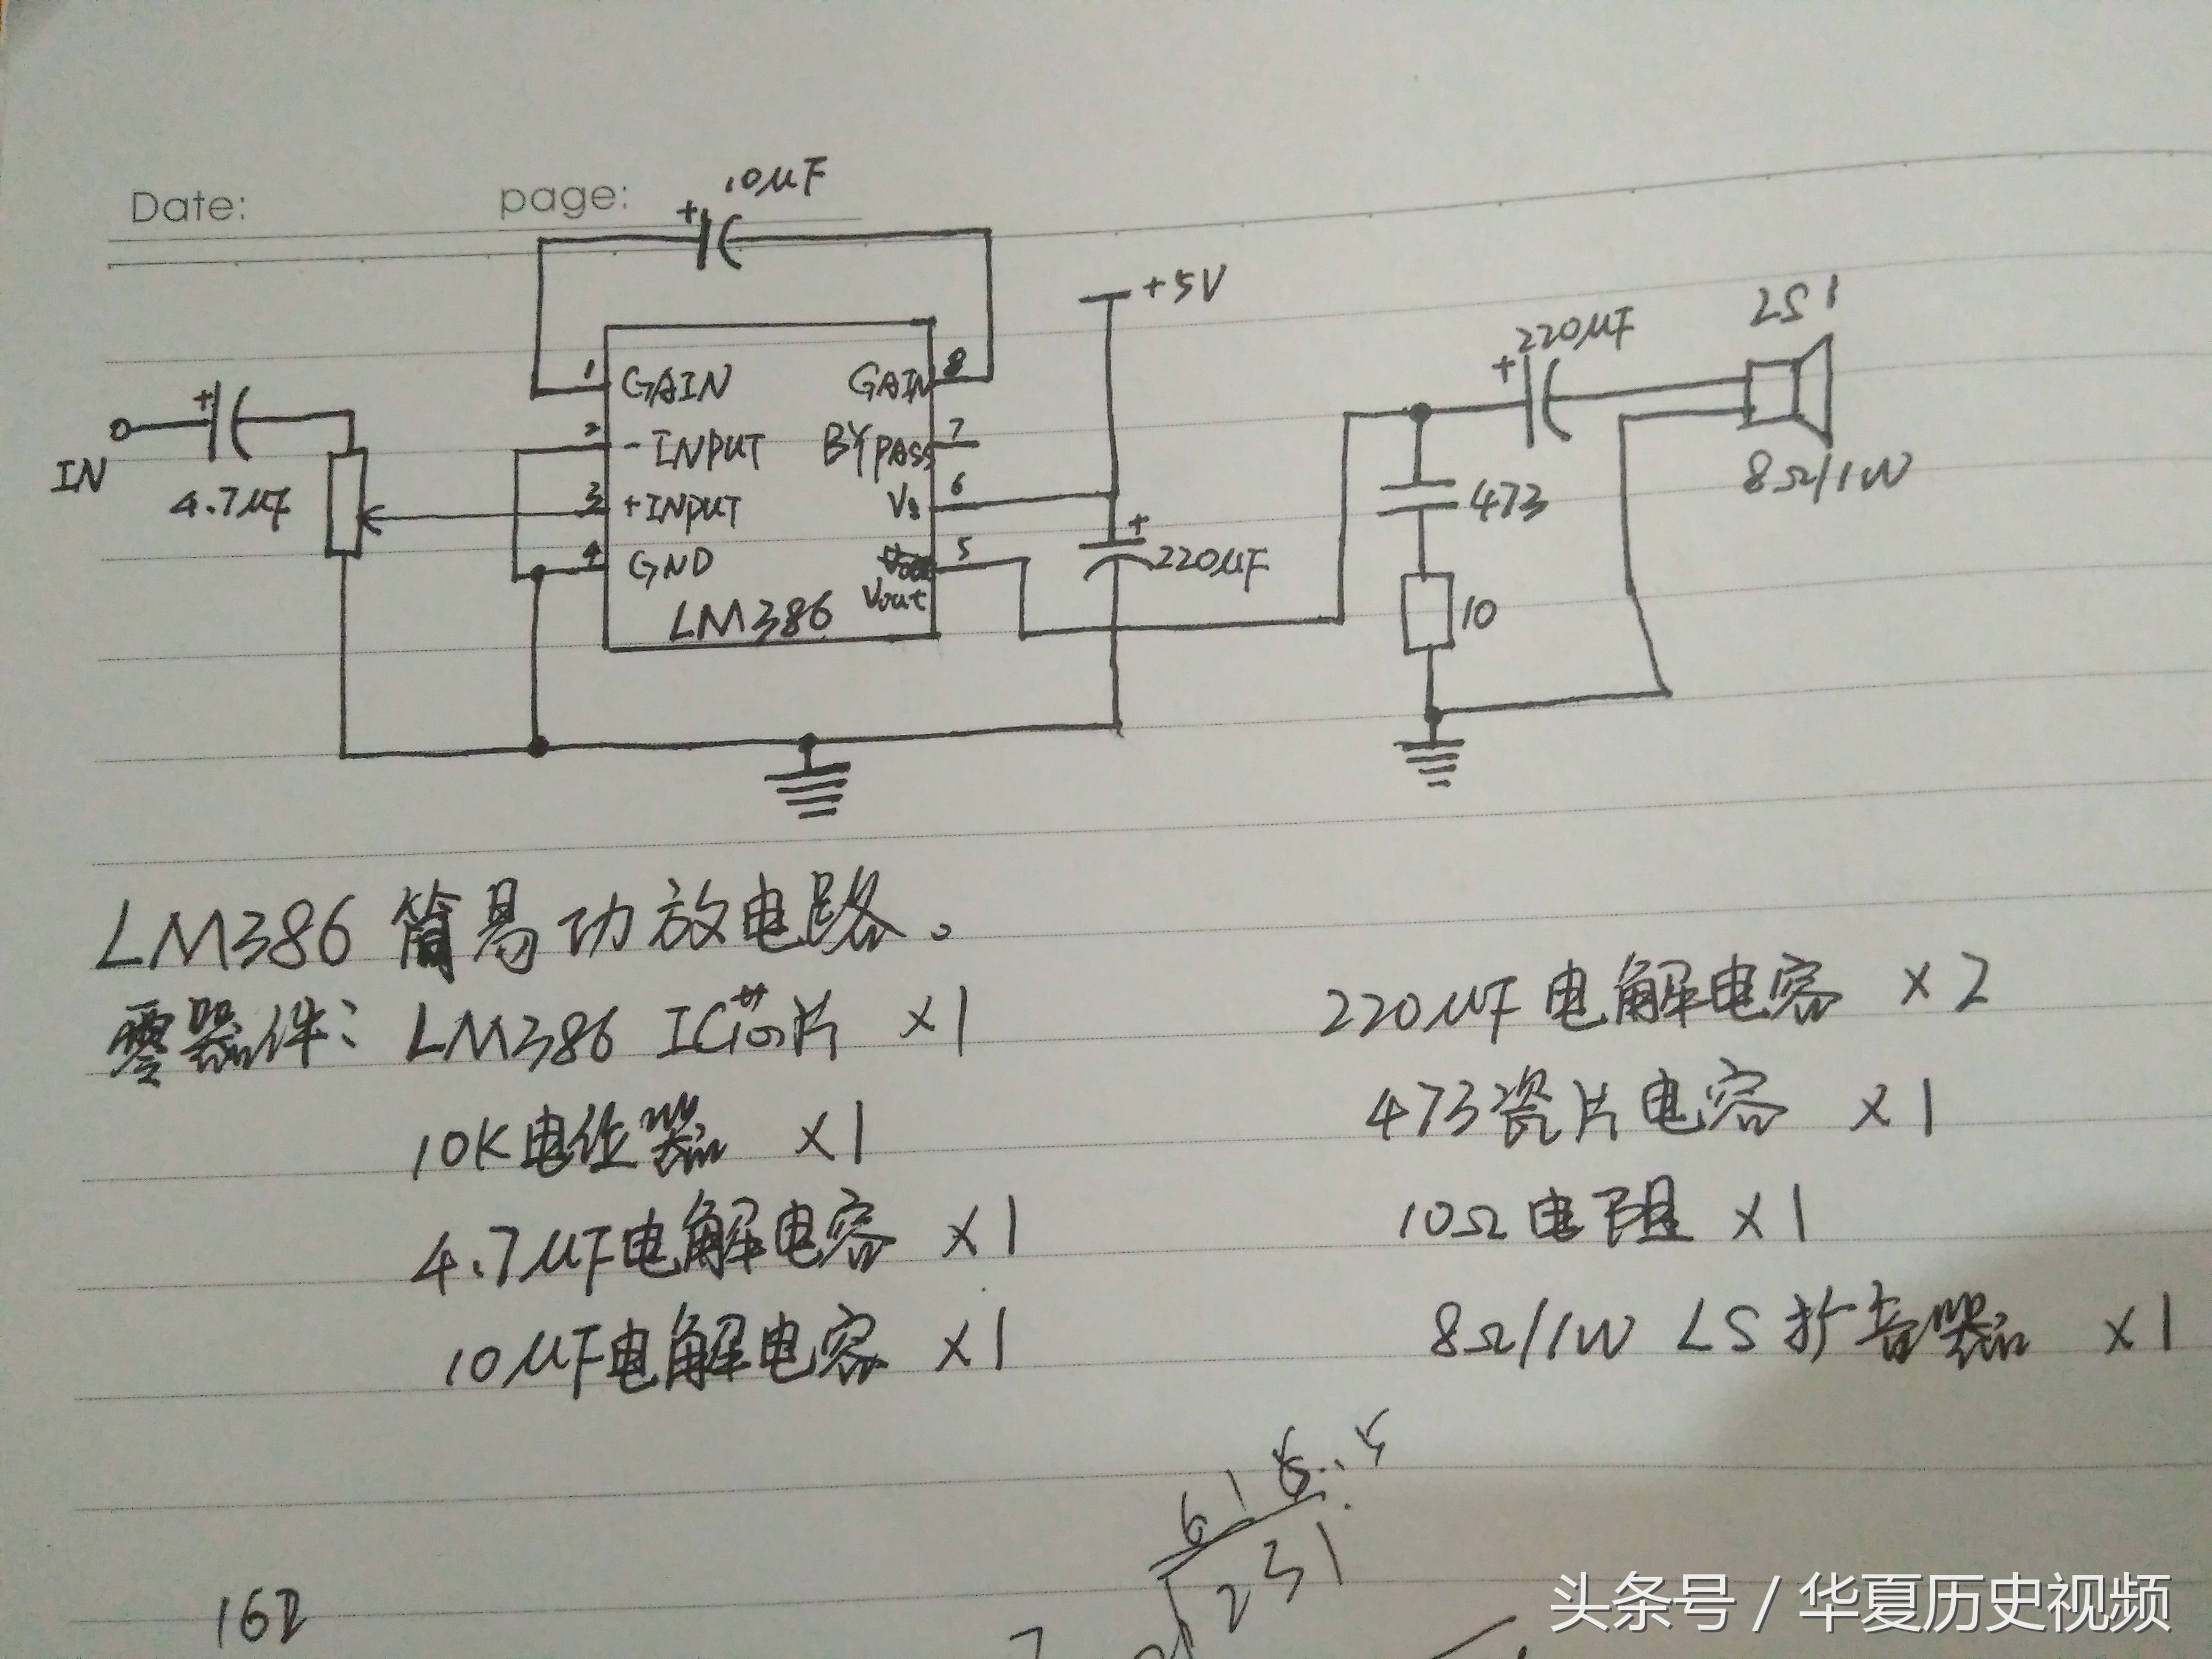 Date: page:
10μF
+
+5V
LS1
220μF
+
1 GAIN GAIN 8
+
2 -INPUT BYPASS 7
IN
4.7μF
3 +INPUT Vs 6
473
8Ω/1W
+
220μF
4 GND 5
Vout
LM386
10
LM386简易功放电路。
零器件: LM386 IC芯片 ×1
220μF电解电容 ×2
10K电位器 ×1
473瓷片电容 ×1
4.7μF电解电容 ×1
10Ω电阻 ×1
10μF电解电容 ×1
8Ω/1W LS扩音器 ×1
231
头条号 / 华夏历史视频